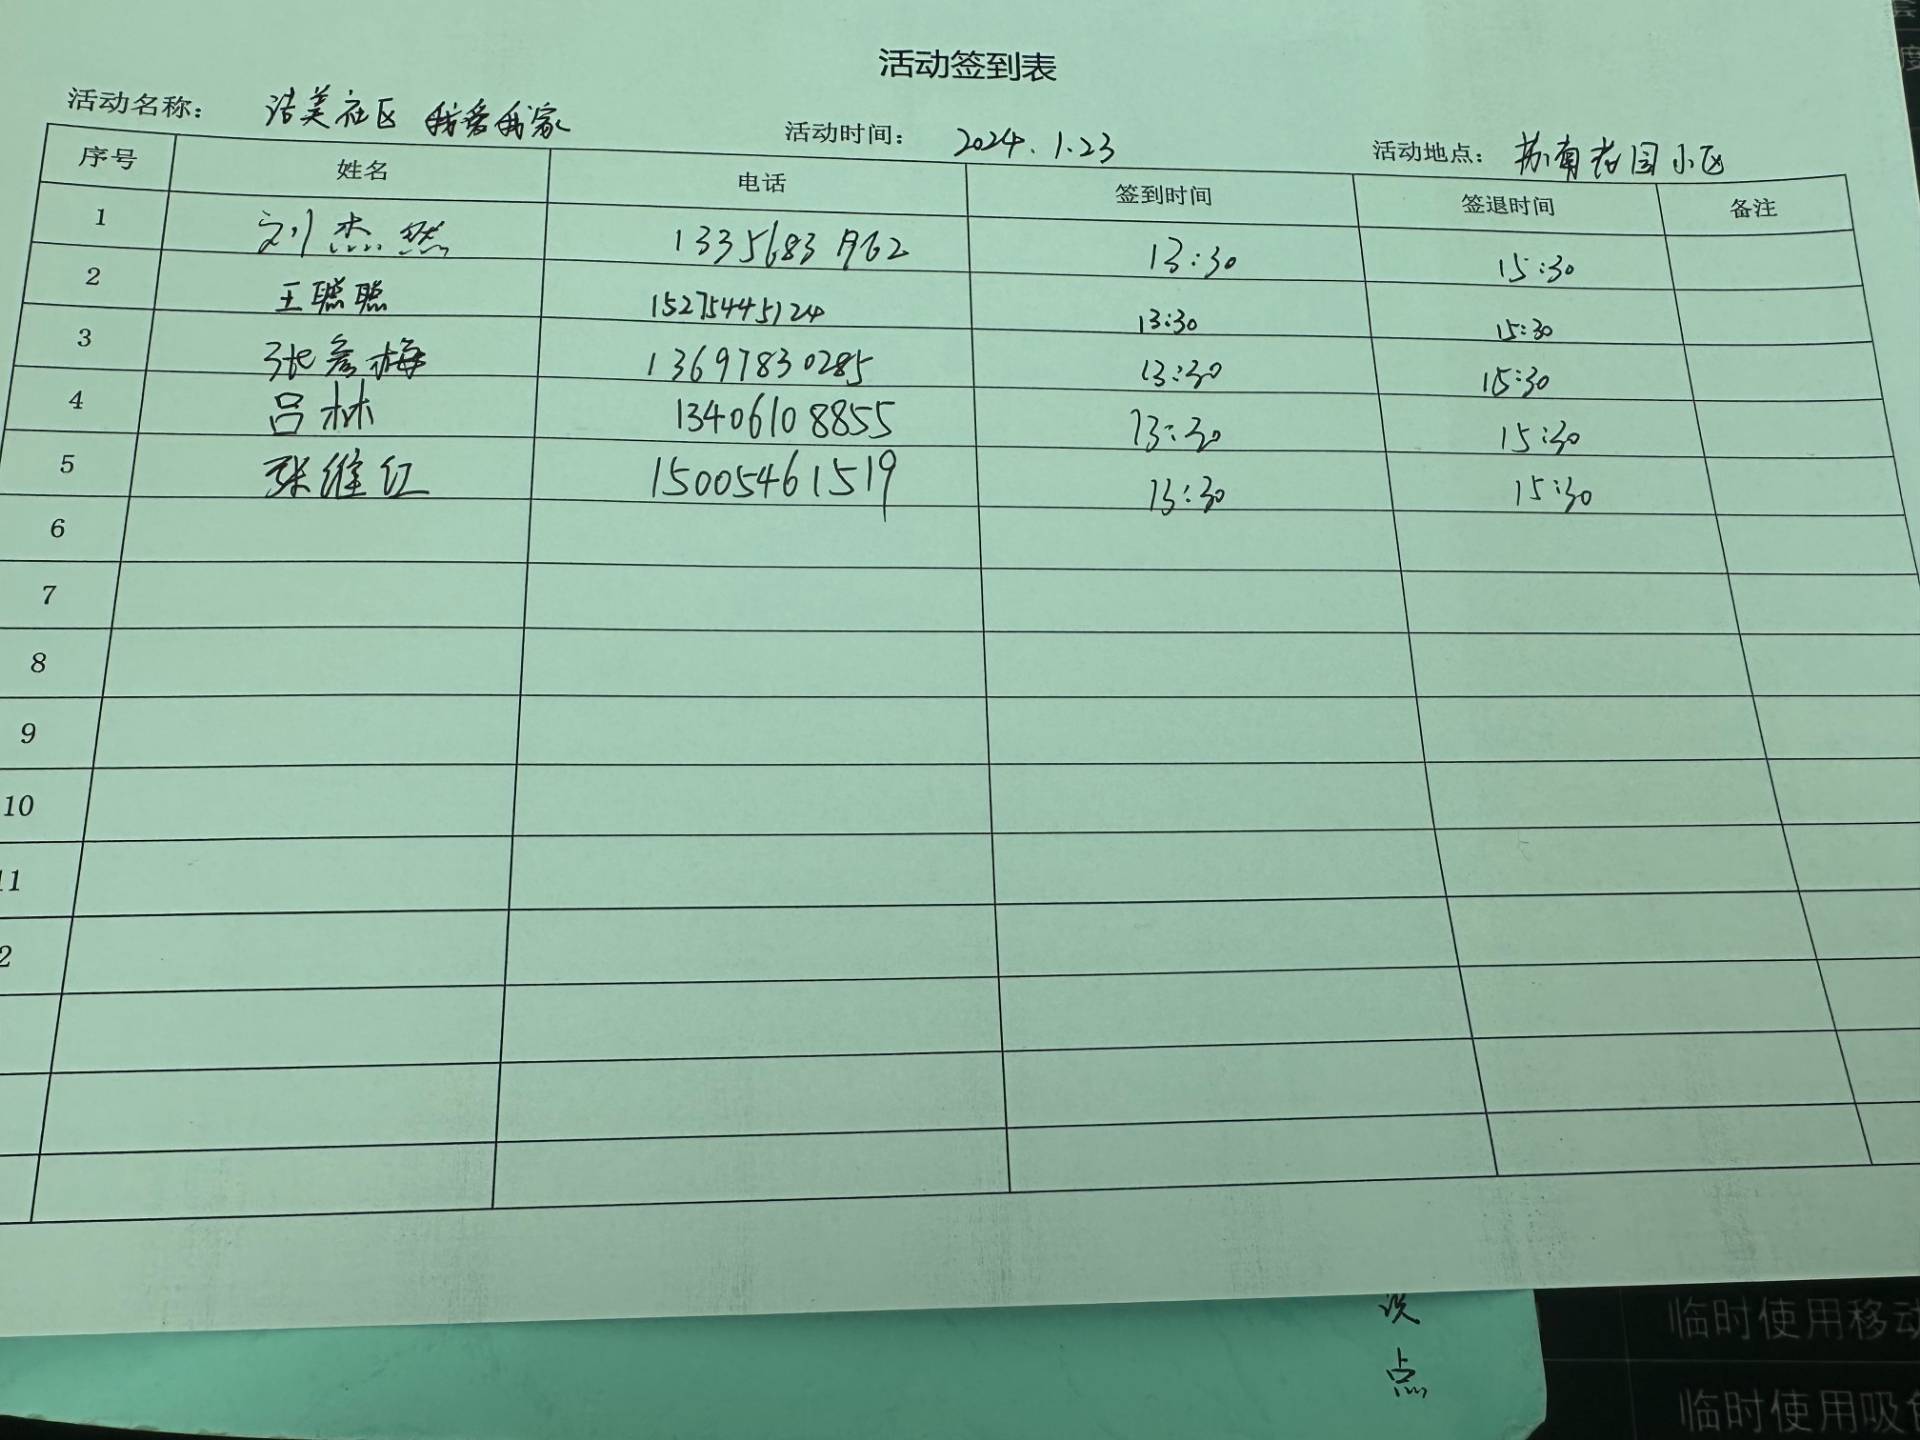 活动签到表
活动名称： 洁美社区 我爱我家 活动时间： 2024.1.23 活动地点： 苏南花园小区
序号 姓名 电话 签到时间 签退时间 备注
1 刘杰然 1335683 13:30 15:30
2 王聪聪 15275445124 13:30 15:30
3 张彦梅 13697830285 13:30 15:30
4 吕林 13406108855 13:30 15:30
5 张维红 15005461519 13:30 15:30
6
7
8
9
10
11
2
点
临时使用移动
临时使用吸